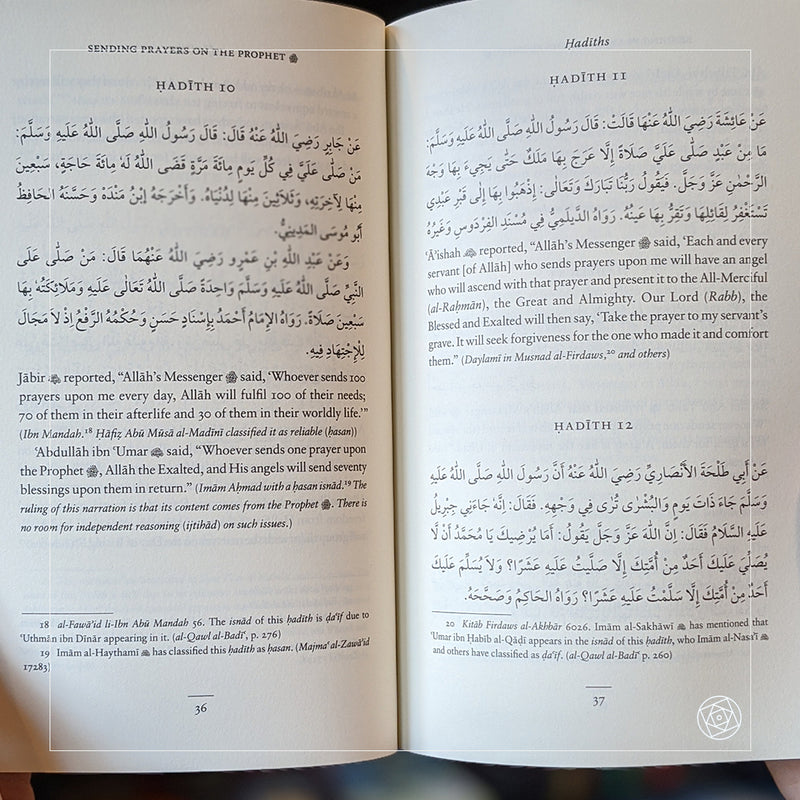 SENDING PRAYERS ON THE PROPHET ﷺ
ḤADĪTH 10
عَنْ جَابِرٍ رَضِيَ اللّٰهُ عَنْهُ قَالَ: قَالَ رَسُولُ اللّٰهِ صَلَّى اللّٰهُ عَلَيْهِ وَسَلَّمَ:
مَنْ صَلّٰى عَلَيَّ فِي كُلِّ يَومٍ مِائَةَ مَرَّةٍ قَضَى اللّٰهُ لَهُ مِائَةَ حَاجَةٍ، سَبْعِينَ
مِنْهَا لِآخِرَتِهِ، وَثَلَاثِينَ مِنْهَا لِدُنْيَاهُ. وَأَخْرَجَهُ اِبْنُ مَنْدَهْ وَحَسَّنَهُ الحَافِظُ
أَبُو مُوسَى المَدِينِيُّ.
وَعَنْ عَبْدِ اللّٰهِ بْنِ عَمْرٍو رَضِيَ اللّٰهُ عَنْهُمَا قَالَ: مَنْ صَلّٰى عَلَى
النَّبِيِّ صَلَّى اللّٰهُ عَلَيْهِ وَسَلَّمَ وَاحِدَةً صَلَّى اللّٰهُ تَعَالٰى عَلَيْهِ وَمَلَائِكَتُهُ بِهَا
سَبْعِينَ صَلَاةً. رَوَاهُ الإِمَامُ أَحْمَدُ بِإِسْنَادٍ حَسَنٍ وَحُكْمُهُ الرَّفْعُ إِذْ لَا مَجَالَ
لِلْاِجْتِهَادِ فِيهِ.
Jābir ؓ reported, “Allāh’s Messenger ﷺ said, ‘Whoever sends 100
prayers upon me every day, Allāh will fulfil 100 of their needs;
70 of them in their afterlife and 30 of them in their worldly life.’”
(Ibn Mandah.¹⁸ Ḥāfiẓ Abū Mūsā al-Madīnī classified it as reliable (ḥasan))
‘Abdullāh ibn ‘Umar ؓ said, “Whoever sends one prayer upon
the Prophet ﷺ, Allāh the Exalted, and His angels will send seventy
blessings upon them in return.” (Imām Aḥmad with a ḥasan isnād.¹⁹ The
ruling of this narration is that its content comes from the Prophet ﷺ. There is
no room for independent reasoning (ijtihād) on such issues.)
18 al-Fawā’id li-Ibn Abū Mandah 56. The isnād of this ḥadīth is ḍa‘īf due to
‘Uthmān ibn Dīnār appearing in it. (al-Qawl al-Badī‘, p. 276)
19 Imām al-Haythamī has classified this ḥadīth as ḥasan. (Majma‘ al-Zawā’id
17283)
36
Ḥadīths
ḤADĪTH 11
عَنْ عَائِشَةَ رَضِيَ اللّٰهُ عَنْهَا قَالَتْ: قَالَ رَسُولُ اللّٰهِ صَلَّى اللّٰهُ عَلَيْهِ وَسَلَّمَ:
مَا مِنْ عَبْدٍ صَلّٰى عَلَيَّ صَلَاةً إِلَّا عَرَجَ بِهَا مَلَكٌ حَتّٰى يَجِيءَ بِهَا وَجْهَ
الرَّحْمٰنِ عَزَّ وَجَلَّ. فَيَقُولُ رَبُّنَا تَبَارَكَ وَتَعَالٰى: إِذْهَبُوا بِهَا إِلٰى قَبْرِ عَبْدِي
تَسْتَغْفِرُ لِقَائِلِهَا وَتَقَرُّ بِهَا عَينُهُ. رَوَاهُ الدَّيلَمِيُّ فِي مُسْنَدِ الفِردَوسِ وَغَيرُهُ
‘Ā’ishah ؓ reported, “Allāh’s Messenger ﷺ said, ‘Each and every
servant [of Allāh] who sends prayers upon me will have an angel
who will ascend with that prayer and present it to the All-Merciful
(al-Raḥmān), the Great and Almighty. Our Lord (Rabb), the
Blessed and Exalted will then say, ‘Take the prayer to my servant’s
grave. It will seek forgiveness for the one who made it and comfort
them.” (Daylamī in Musnad al-Firdaws,²⁰ and others)
ḤADĪTH 12
عَنْ أَبِي طَلْحَةَ الأَنْصَارِيِّ رَضِيَ اللّٰهُ عَنْهُ أَنَّ رَسُولَ اللّٰهِ صَلَّى اللّٰهُ عَلَيْهِ
وَسَلَّمَ جَاءَ ذَاتَ يَومٍ وَالبُشْرٰى تُرٰى فِي وَجْهِهِ. فَقَالَ: إِنَّهُ جَاءَنِي جِبْرِيلُ
عَلَيهِ السَّلَامُ فَقَالَ: إِنَّ اللّٰهَ عَزَّ وَجَلَّ يَقُولُ: أَمَا يُرْضِيكَ يَا مُحَمَّدُ أَنْ لَا
يُصَلِّيَ عَلَيكَ أَحَدٌ مِنْ أُمَّتِكَ إِلَّا صَلَّيتُ عَلَيهِ عَشْرًا؟ وَلَا يُسَلِّمَ عَلَيكَ
أَحَدٌ مِنْ أُمَّتِكَ إِلَّا سَلَّمْتُ عَلَيهِ عَشْرًا؟ رَوَاهُ الحَاكِمُ وَصَحَّحَهُ.
20 Kitāb Firdaws al-Akhbār 6026. Imām al-Sakhāwī has mentioned that
‘Umar ibn Ḥabīb al-Qāḍī appears in the isnād of this ḥadīth, who Imām al-Nasā’ī
and others have classified as ḍa‘īf. (al-Qawl al-Badī‘ p. 260)
37